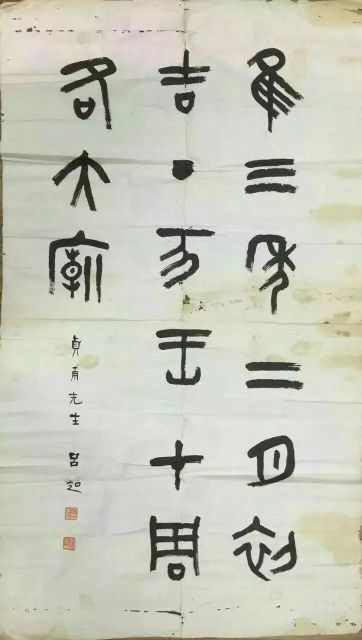 隹三年二月初
吉丁亥王才周
各大廟
貞甫先生 呂